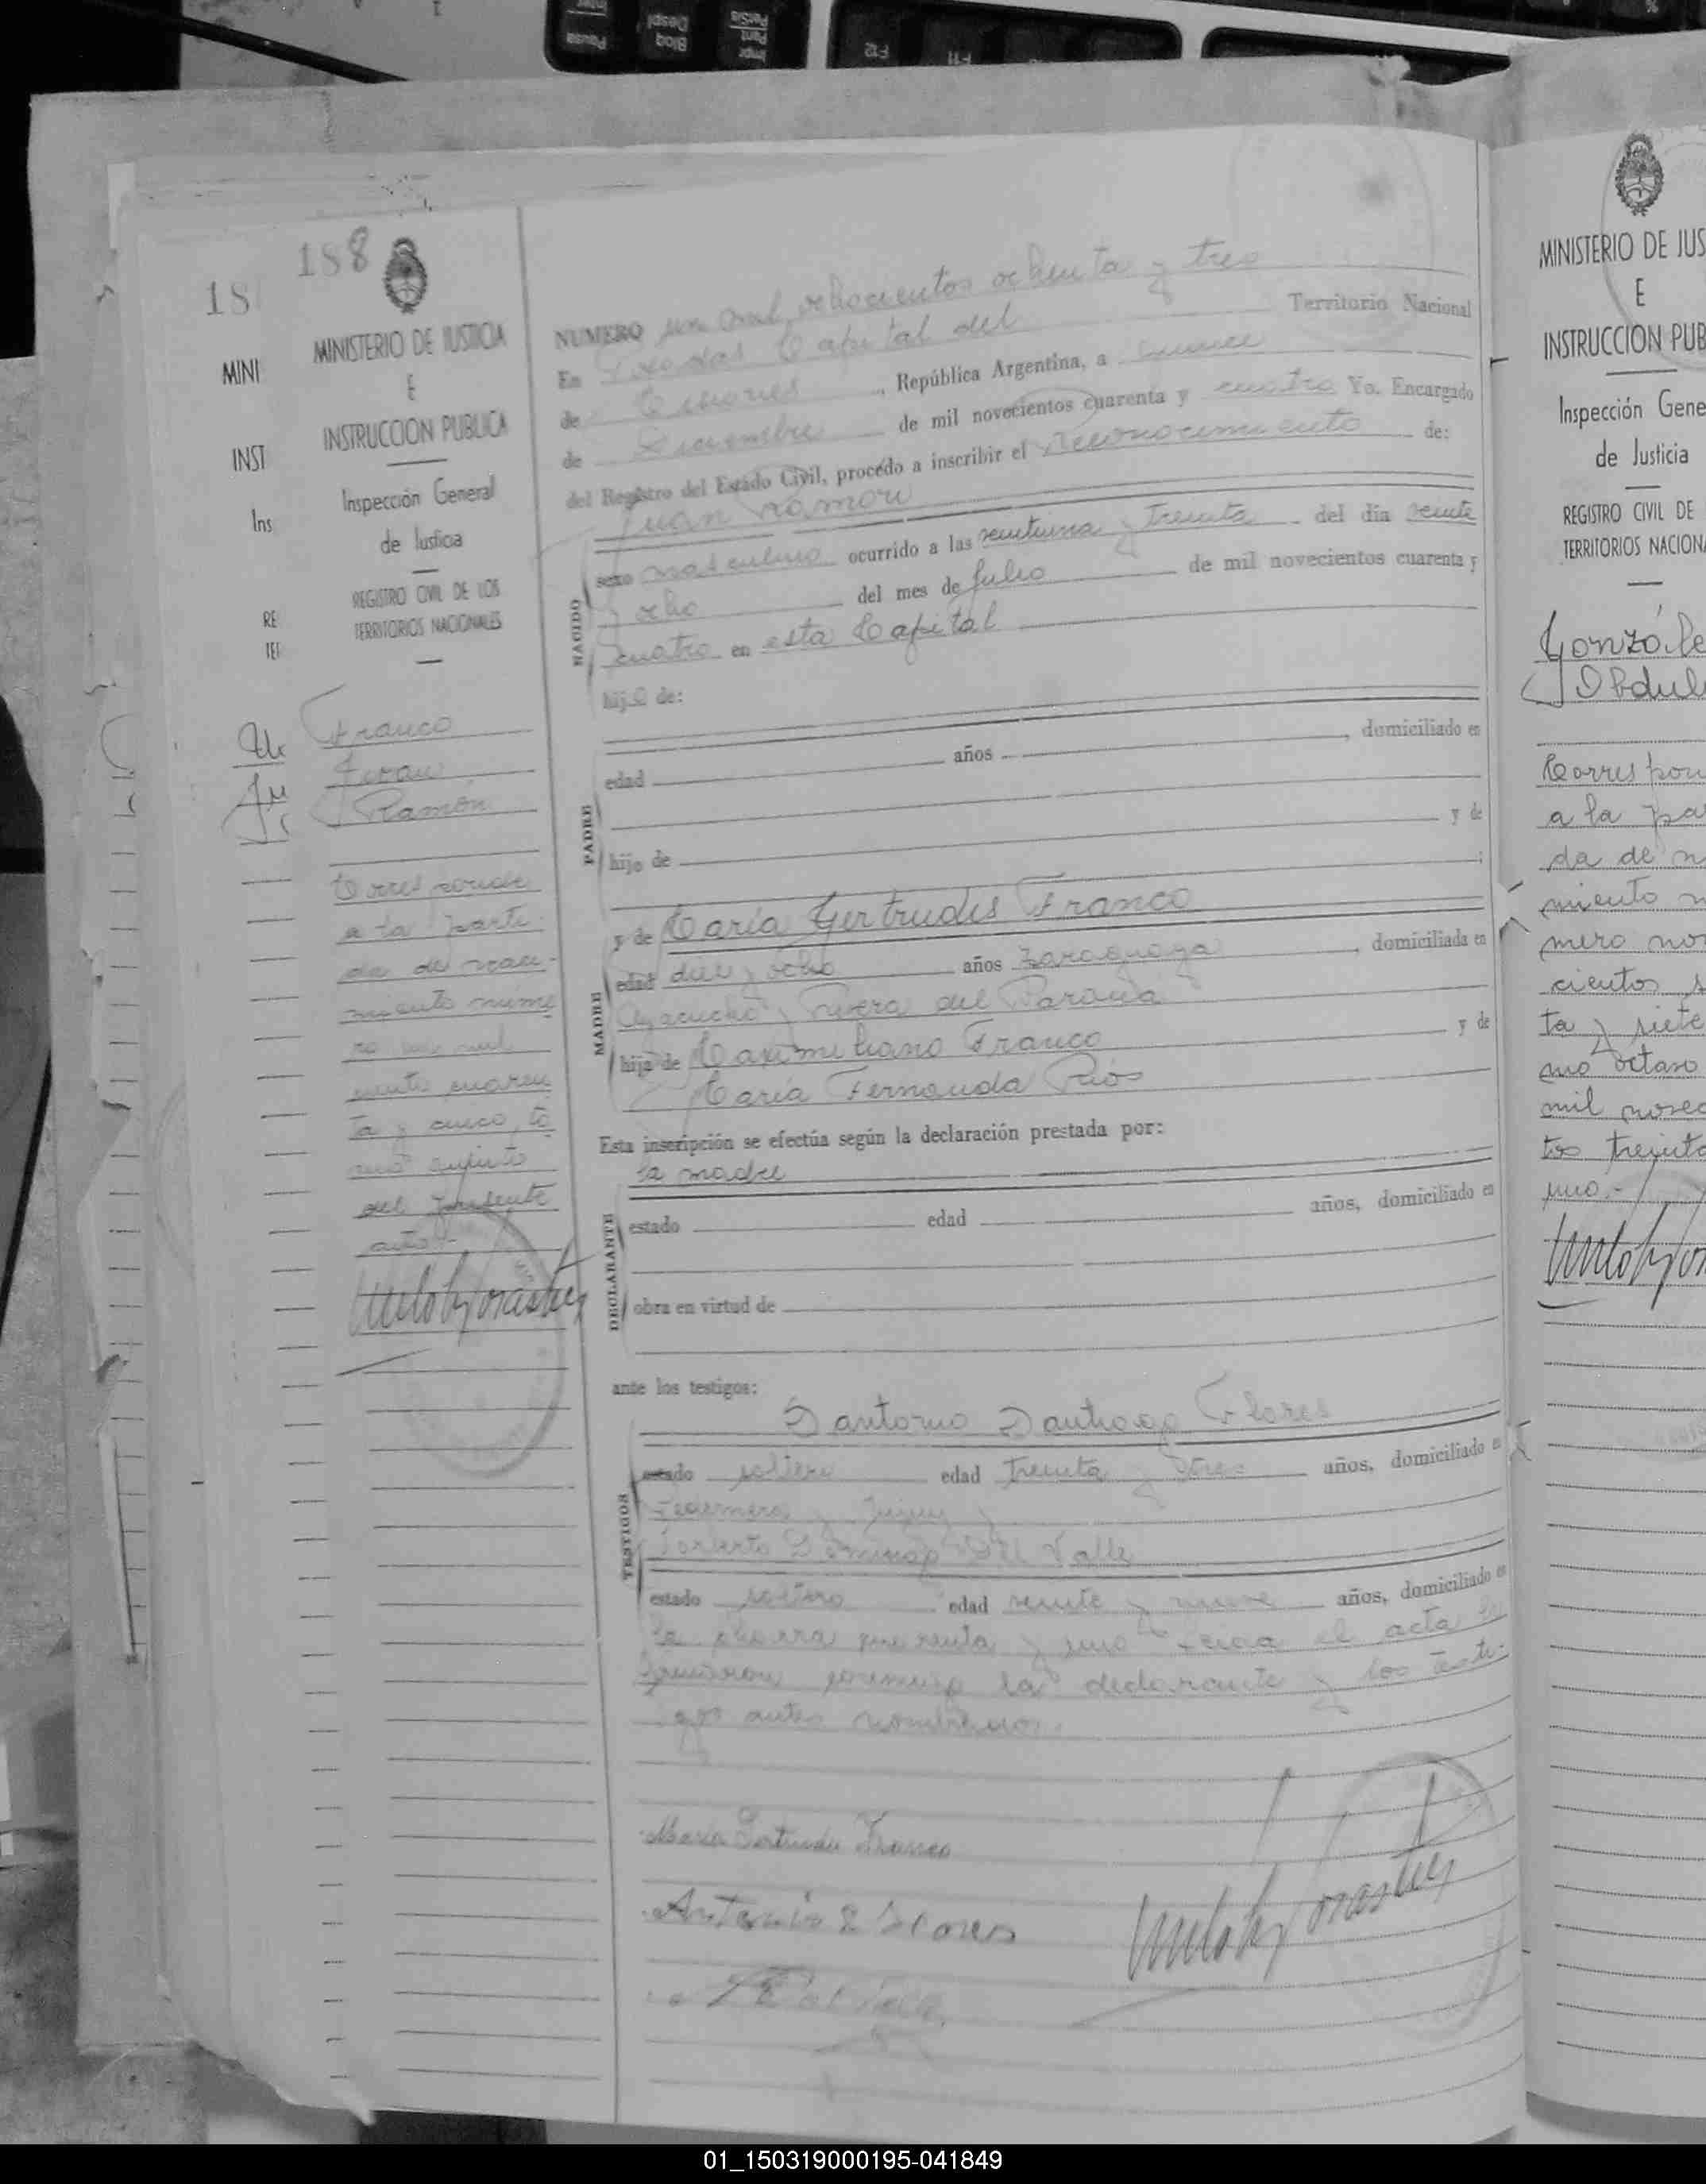 188
18
MINISTERIO DE JUSTICIA
E
INSTRUCCION PUBLICA
Inspección General
de Justicia
REGISTRO CIVIL DE LOS
TERRITORIOS NACIONALES
MINI
INST
Ins
RE
TER
Franco
Juan
Ramón
Corresponde
a la parti-
da de naci-
miento núme
ro un mil
ciento cuaren
ta y cinco, to
mo quinto
del presente
año.-
NUMERO un mil ochocientos ochenta y tres
En Posadas Capital del Territorio Nacional
de Misiones, República Argentina, a quince
de Diciembre de mil novecientos cuarenta y cuatro Yo, Encargado
del Registro del Estado Civil, procedo a inscribir el reconocimiento de:
Juan Ramón
NACIDO
sexo masculino ocurrido a las veintiuna y treinta del día veinte
y ocho del mes de Julio de mil novecientos cuarenta y
cuatro en esta Capital
hijo de:
PADRE
edad años , domiciliado en
hijo de y de
;
y de María Gertrudis Franco
MADRE
edad diez y ocho años Paraguaya, domiciliada en
Ayacucho y Rivera del Paraná
hija de Maximiliano Franco y de
María Fernanda Ríos
Esta inscripción se efectúa según la declaración prestada por:
la madre
DECLARANTE
estado edad años, domiciliado en
obra en virtud de
ante los testigos:
Dantonio Santiago Flores
TESTIGOS
estado soltero edad treinta y tres años, domiciliado en
y Jujuy y
Domingo Del Valle
estado soltero edad veinte y nueve años, domiciliado en
la chacra cuarenta y uno Leida el acta la
firmaron conmigo la declarante y los testi-
gos antes nombrados.
María Gertrudis Franco
Antonio S Flores
MINISTERIO DE JUS
E
INSTRUCCION PUB
Inspección Gene
de Justicia
REGISTRO CIVIL DE
TERRITORIOS NACIONA
Gonzále
Obdul
Correspon
a la par
da de n
miento n
mero nov
cientos s
ta y siete
mo octavo
mil novec
tos treinta
uno.-
01_150319000195-041849